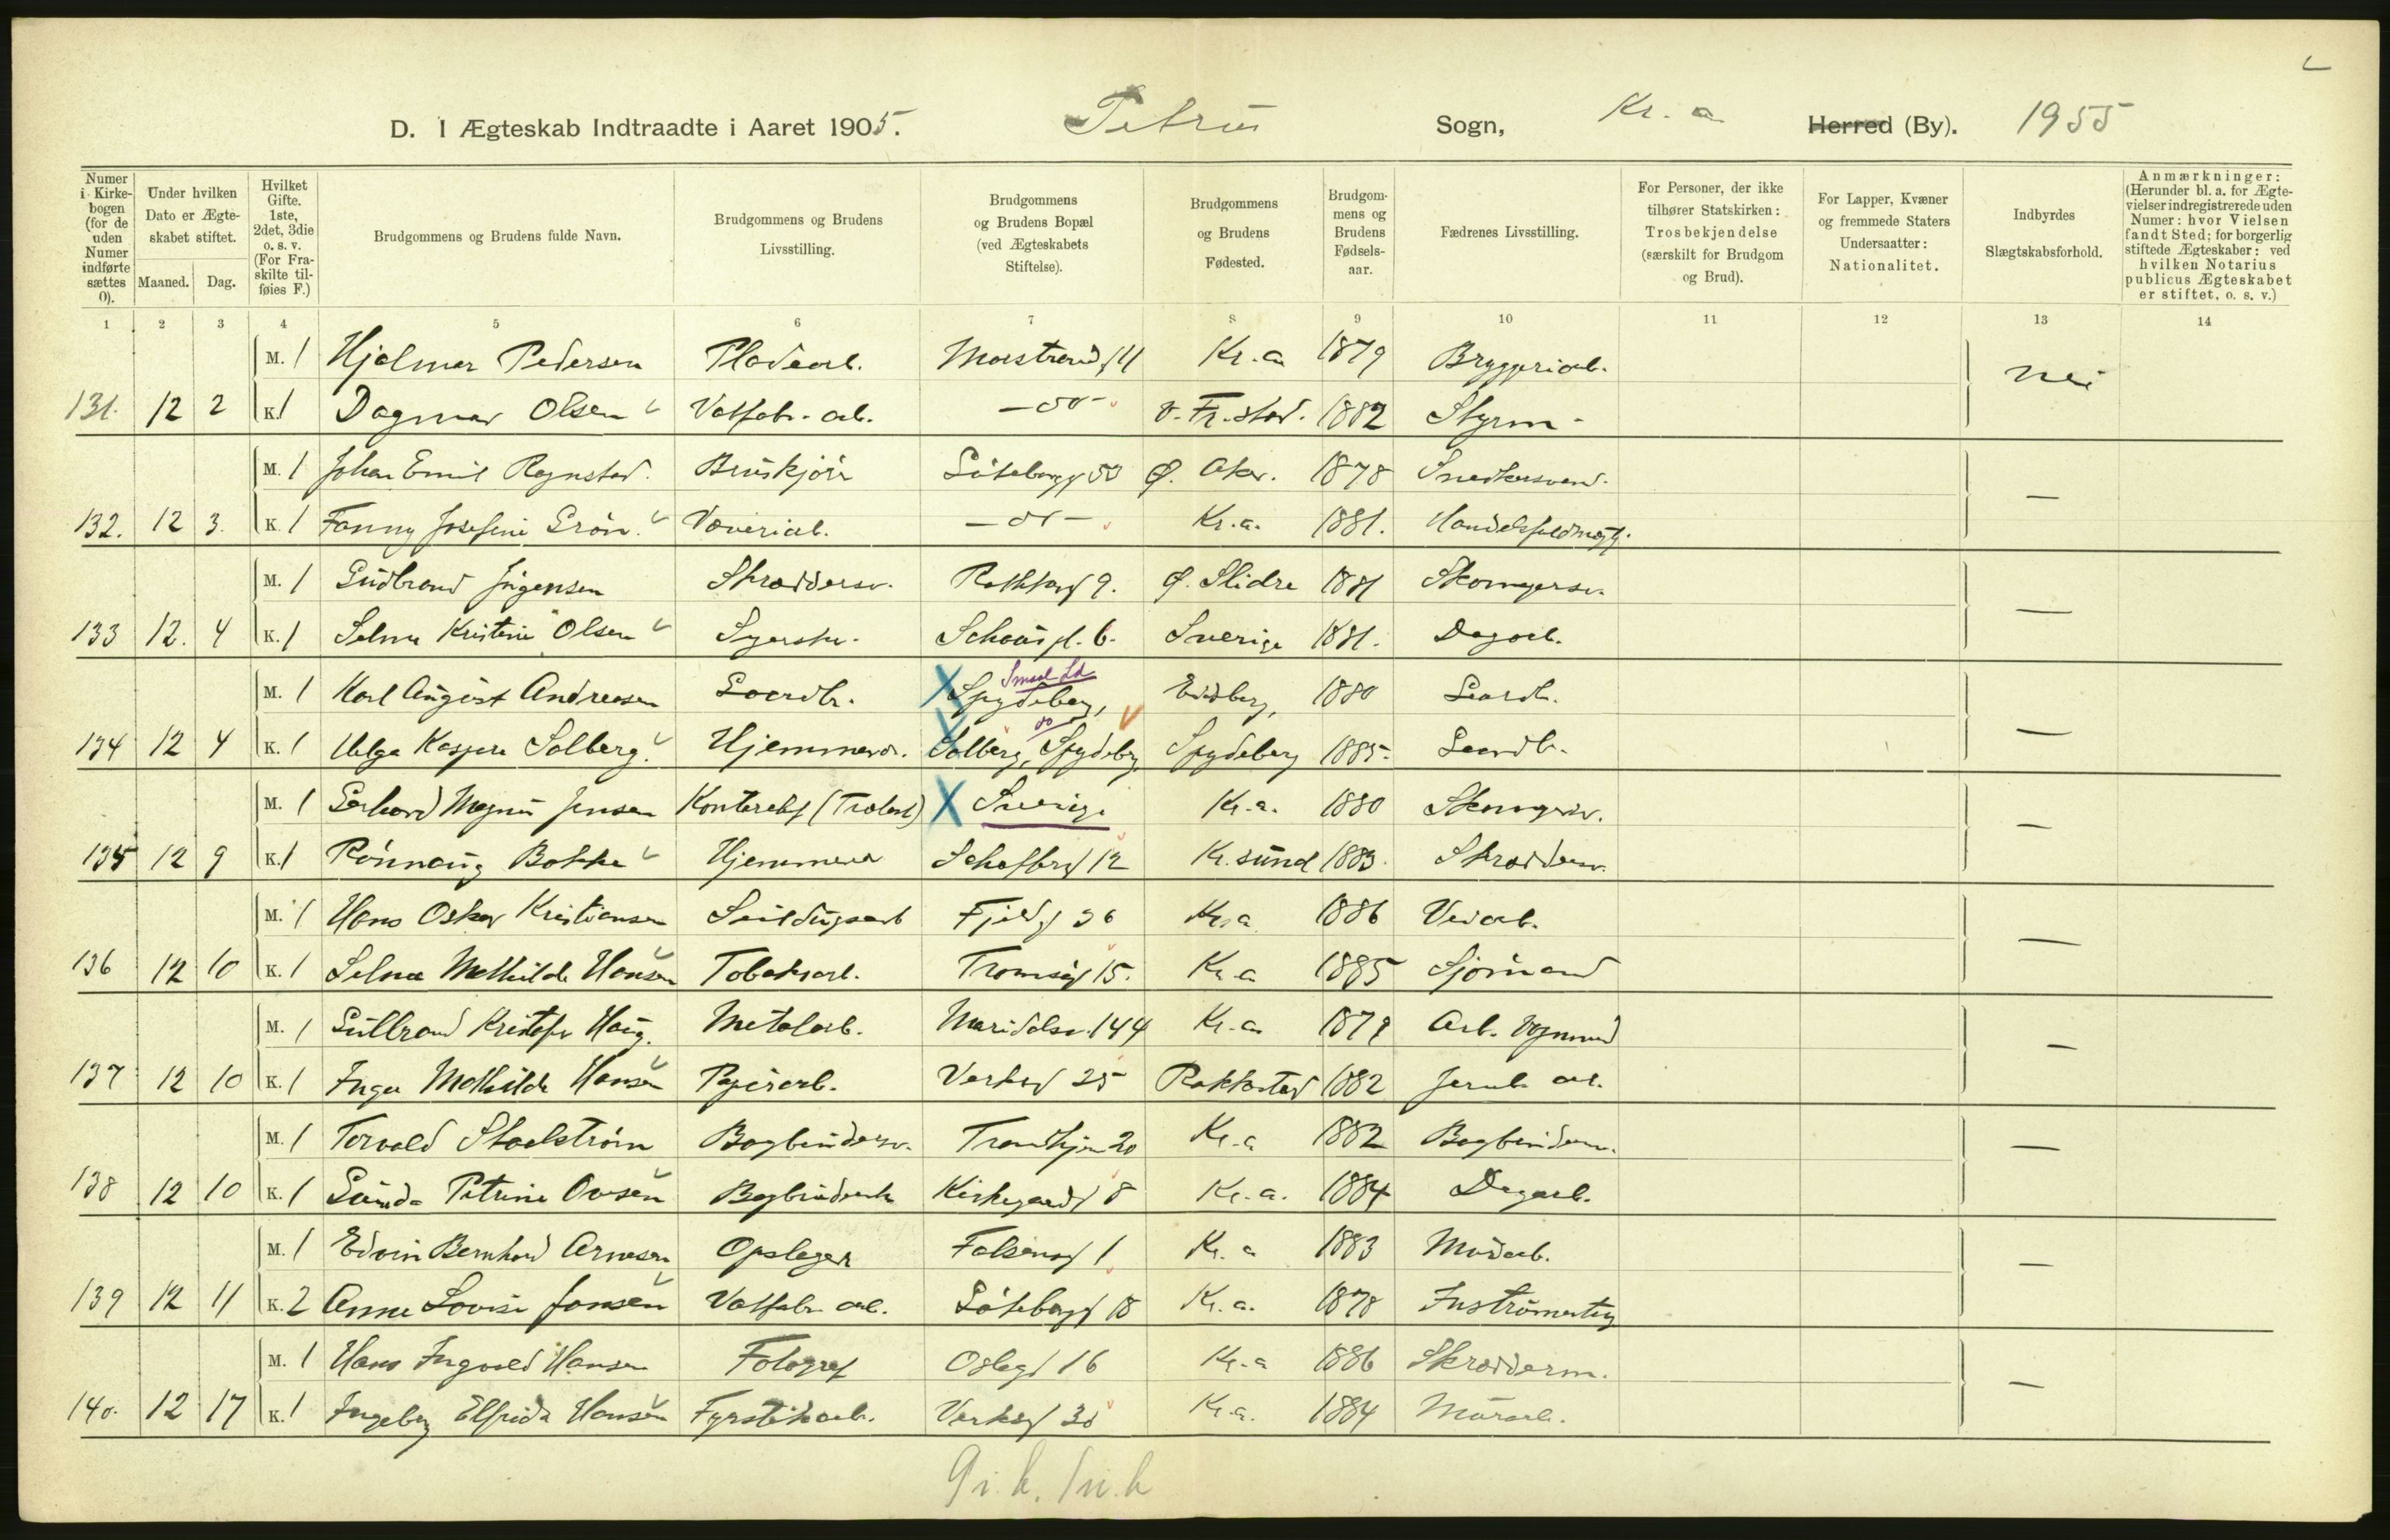 D. I Ægteskab Indtraadte i Aaret 1905. Petrus Sogn, Kr.a. Herred (By). 1955
Numer i Kirkebogen (for de uden Numer indførte sættes 0).
Under hvilken Dato er Ægteskabet stiftet.
Maaned. Dag.
Hvilket Gifte. 1ste, 2det, 3die o. s. v. (For Fraskilte tilføies F.)
Brudgommens og Brudens fulde Navn.
Brudgommens og Brudens Livsstilling.
Brudgommens og Brudens Bopæl (ved Ægteskabets Stiftelse).
Brudgommens og Brudens Fødested.
Brudgommens og Brudens Fødselsaar.
Fædrenes Livsstilling.
For Personer, der ikke tilhører Statskirken: Trosbekjendelse (særskilt for Brudgom og Brud).
For Lapper, Kvæner og fremmede Staters Undersaatter: Nationalitet.
Indbyrdes Slægtskabsforhold.
Anmærkninger: (Herunder bl. a. for Ægtevielser indregistrerede uden Numer: hvor Vielsen fandt Sted; for borgerlig stiftede Ægteskaber: ved hvilken Notarius publicus Ægteskabet er stiftet, o. s. v.)
1 2 3 4 5 6 7 8 9 10 11 12 13 14
M. 1 Hjalmar Pedersen Pladearb. 14 Kr.a 1879 Bryggeriarb. nei
131. 12 2 K. 1 Dagmar Olsen Valsfabr. arb. — do — v. Fr.stad. 1882 Styrm.
M. 1 Johan Emil Rognstad. Bruskjór Götebergg 53 Ø. Aker. 1878 Snedkersvend. —
132. 12 3. K. 1 Fanny Josefine Grön. Væveriarb. — do — Kr.a. 1881. Handelsfuldmægtg.
M. 1 Gudbrand Ingensen Skræddersv. 9. Ø. Slidre 1881 Skomagersv. —
133 12. 4 K. 1 Selma Kristine Olsen Syerske. Schous pl. 6. Sverige 1881. Dagarb.
M. 1 Karl August Andreasen Gaardbr. Spydeberg, Smaal. Ld Eidsberg, 1880 Gaardb. —
134 12 4 K. 1 Helga Kaspara Solberg. Hjemmevær. Solberg, Spydebg do Spydeberg 1885. Gaardb.
M. 1 Gerhard Magnus Jensen Kontorchf (Trælast) Sverige Kr.a. 1880 Skomgersv. —
135 12 9 K. 1 Rönnaug Bakke Hjemmevær Schafteløg 12 Kr.sund 1883. Skræddersv.
M. 1 Hans Oskar Kristiansen Seildugsarb Fjeldg 36 Kr.a 1886 Veiarb. —
136 12 10 K. 1 Selma Mathilde Hansen Tobaksarb. Tromsög 15. Kr.a 1885 Sjömand
M. 1 Gulbrand Kristofer Haug. Metalarb. Maridalsv. 144 Kr.a 1879 Arb. Vognmand —
137 12 10 K. 1 Inga Mathilde Hansen Papirarb. Verksg 25 Rakkestad 1882 Jernb. arb.
M. 1 Torvald Staalström Bogbindersv. Trondhjm 20 Kr.a 1882 Bogbinderm. —
138 12 10 K. 1 Gunda Petrine Ovesen Bogbinderske Kirkegaardsg 8 Kr.a. 1884 Dagarb.
M. 1 Edvin Bernhard Arnesen Opslager Falsensg 1 Kr.a 1883 Murarb. —
139 12 11 K. 2 Anne Lovise Jonsen Valsfabr. arb. Götebergg 18 Kr.a. 1878 Instrumentm
M. 1 Hans Ingvald Hansen Fotograf Oslog 16 Kr.a 1886 Skrædderm. —
140. 12 17 K. 1 Ingeborg Elfrida Hansen Fyrstikarb. Verksg 30 Kr.a. 1884 Murarb.
9 i. b. 1 u. b